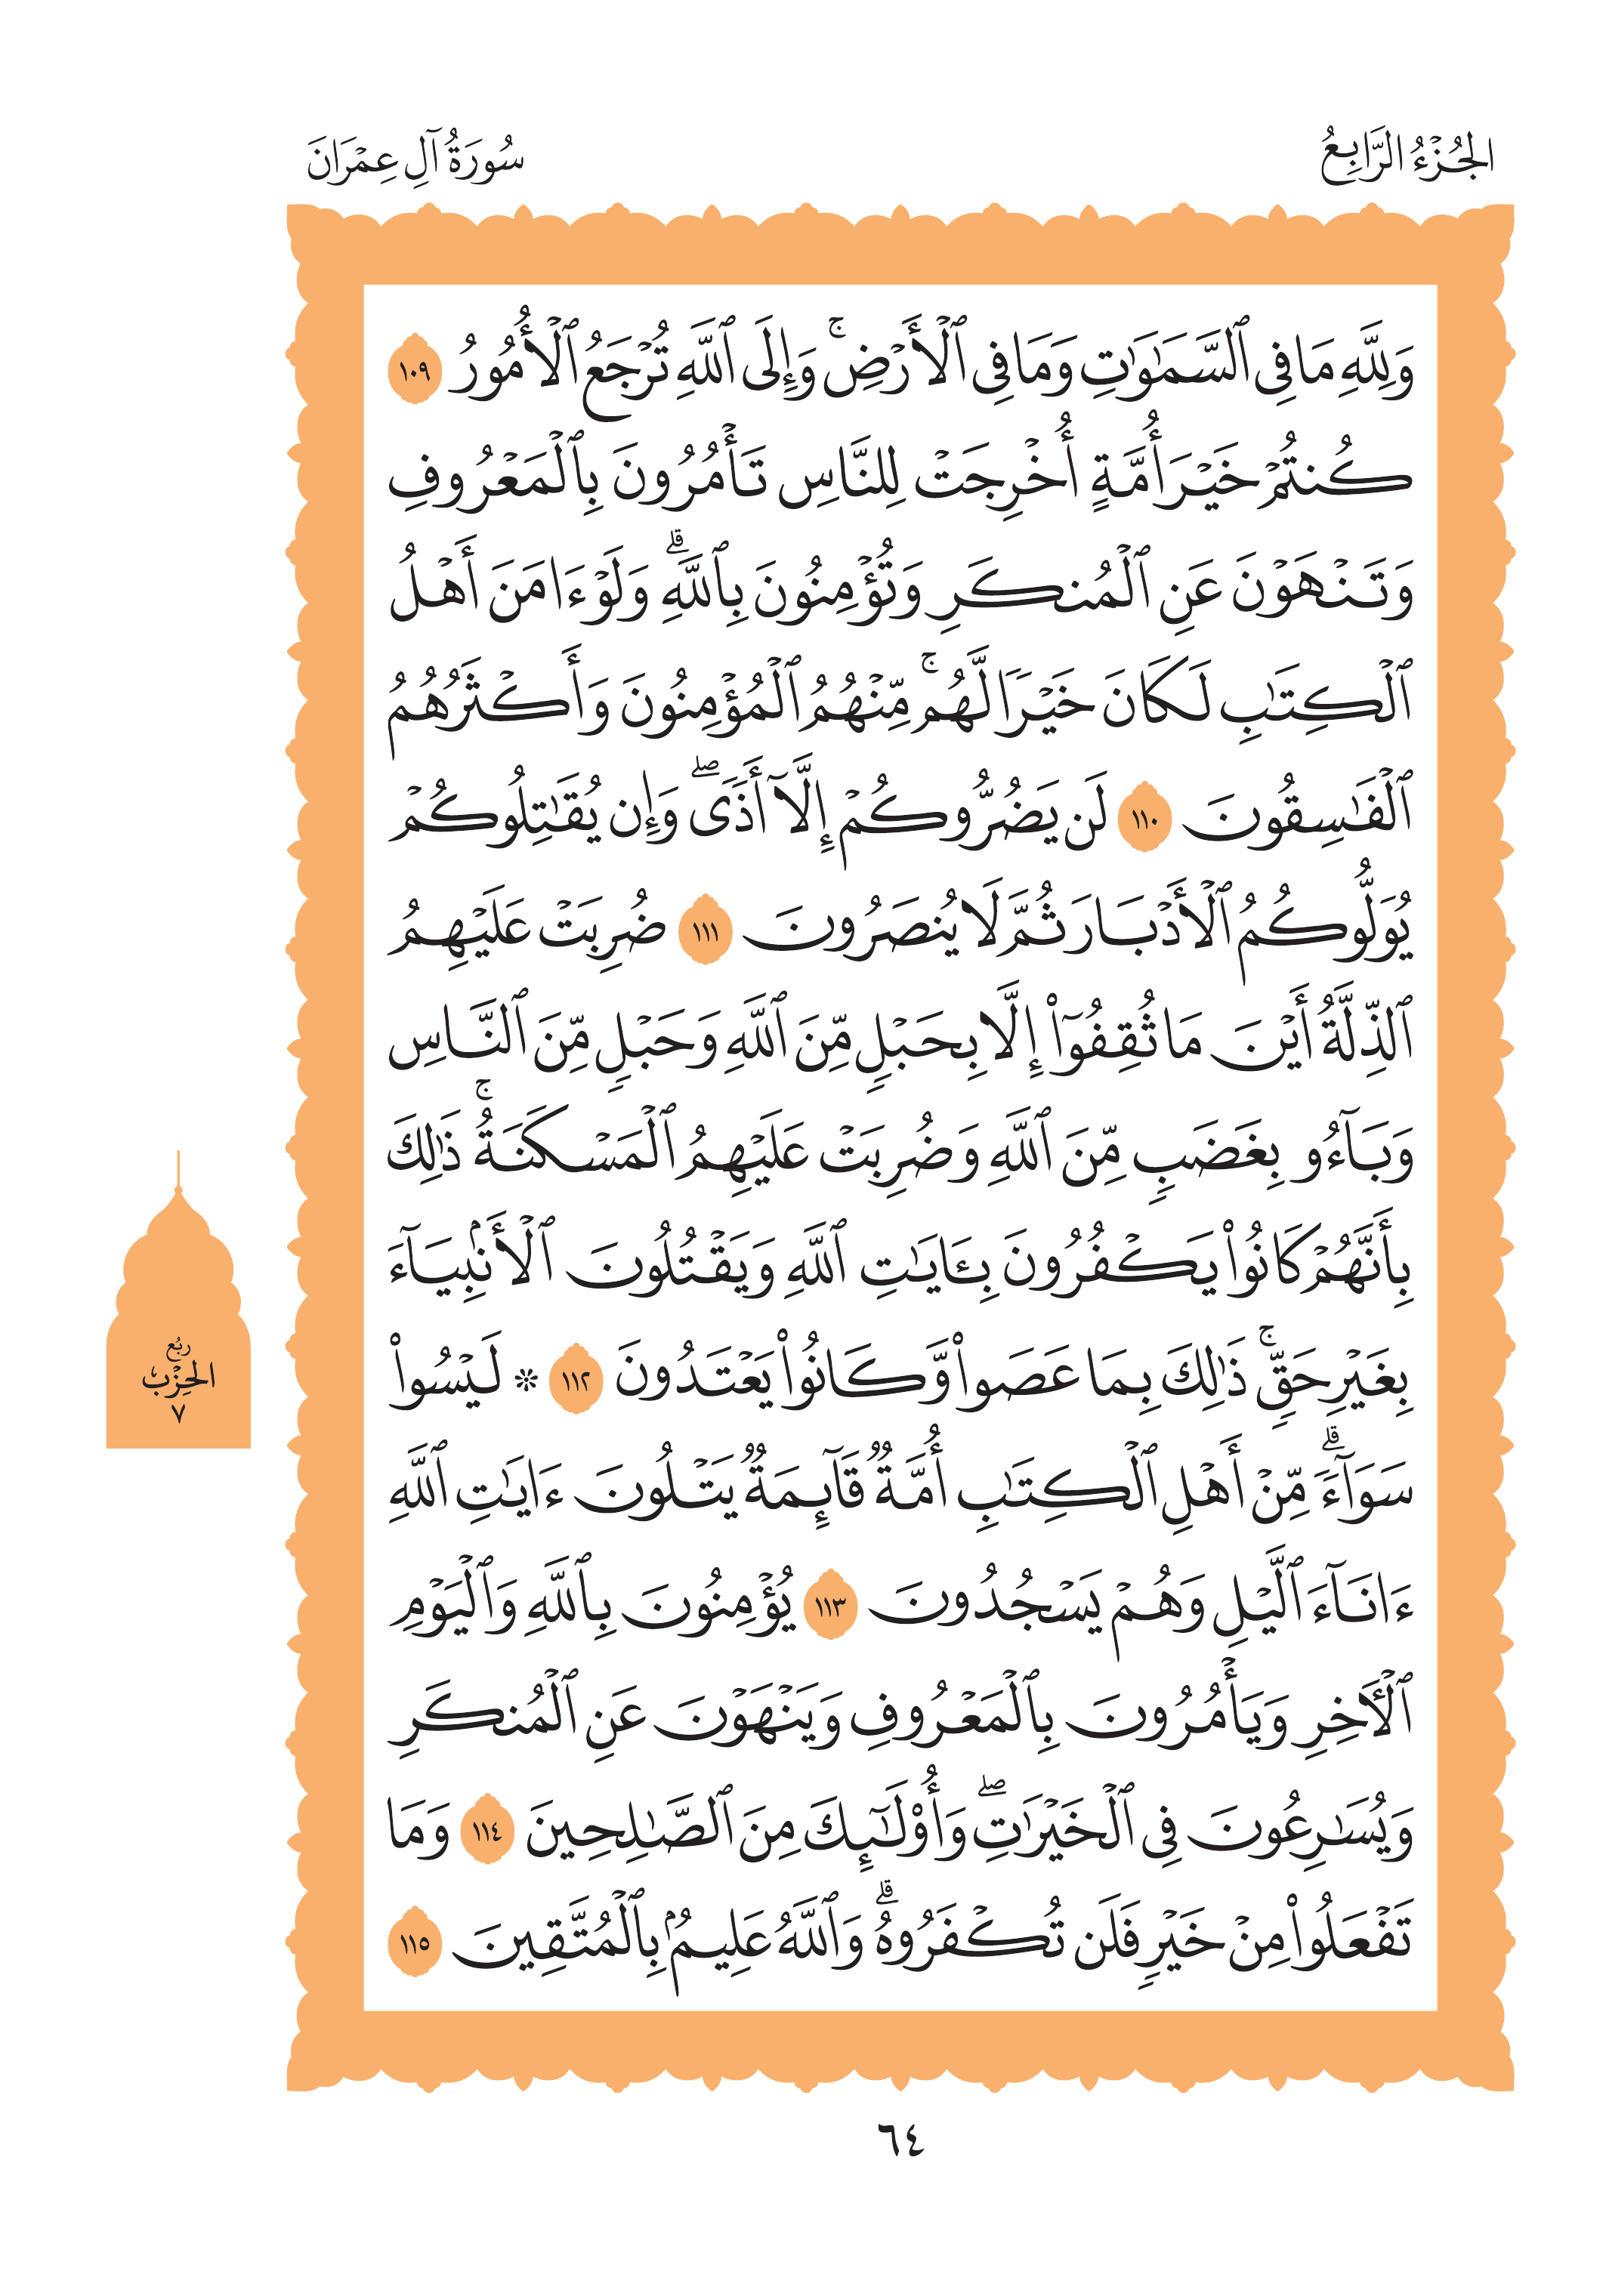 الجُزْءُ الرَّابِعُ
سُورَةُ آلِ عِمْرَانَ
وَلِلَّهِ مَا فِي ٱلسَّمَٰوَٰتِ وَمَا فِي ٱلْأَرْضِۚ وَإِلَى ٱللَّهِ تُرْجَعُ ٱلْأُمُورُ ١٠٩
كُنتُمْ خَيْرَ أُمَّةٍ أُخْرِجَتْ لِلنَّاسِ تَأْمُرُونَ بِٱلْمَعْرُوفِ
وَتَنْهَوْنَ عَنِ ٱلْمُنكَرِ وَتُؤْمِنُونَ بِٱللَّهِۗ وَلَوْ ءَامَنَ أَهْلُ
ٱلْكِتَٰبِ لَكَانَ خَيْرًا لَّهُمۚ مِّنْهُمُ ٱلْمُؤْمِنُونَ وَأَكْثَرُهُمُ
ٱلْفَٰسِقُونَ ١١٠ لَن يَضُرُّوكُمْ إِلَّآ أَذًىۖ وَإِن يُقَٰتِلُوكُمْ
يُوَلُّوكُمُ ٱلْأَدْبَارَ ثُمَّ لَا يُنصَرُونَ ١١١ ضُرِبَتْ عَلَيْهِمُ
ٱلذِّلَّةُ أَيْنَ مَا ثُقِفُوٓاْ إِلَّا بِحَبْلٍ مِّنَ ٱللَّهِ وَحَبْلٍ مِّنَ ٱلنَّاسِ
وَبَآءُو بِغَضَبٍ مِّنَ ٱللَّهِ وَضُرِبَتْ عَلَيْهِمُ ٱلْمَسْكَنَةُۚ ذَٰلِكَ
بِأَنَّهُمْ كَانُواْ يَكْفُرُونَ بِـَٔايَٰتِ ٱللَّهِ وَيَقْتُلُونَ ٱلْأَنۢبِيَآءَ
بِغَيْرِ حَقٍّۚ ذَٰلِكَ بِمَا عَصَواْ وَّكَانُواْ يَعْتَدُونَ ١١٢ ۞ لَيْسُواْ
سَوَآءًۗ مِّنْ أَهْلِ ٱلْكِتَٰبِ أُمَّةٌ قَآئِمَةٌ يَتْلُونَ ءَايَٰتِ ٱللَّهِ
ءَانَآءَ ٱلَّيْلِ وَهُمْ يَسْجُدُونَ ١١٣ يُؤْمِنُونَ بِٱللَّهِ وَٱلْيَوْمِ
ٱلْأٓخِرِ وَيَأْمُرُونَ بِٱلْمَعْرُوفِ وَيَنْهَوْنَ عَنِ ٱلْمُنكَرِ
وَيُسَٰرِعُونَ فِي ٱلْخَيْرَٰتِۖ وَأُوْلَٰٓئِكَ مِنَ ٱلصَّٰلِحِينَ ١١٤ وَمَا
تَفْعَلُواْ مِنْ خَيْرٍ فَلَن تُكْفَرُوهُۗ وَٱللَّهُ عَلِيمُۢ بِٱلْمُتَّقِينَ ١١٥
ربُع
الحِزْب
٧
٦٤